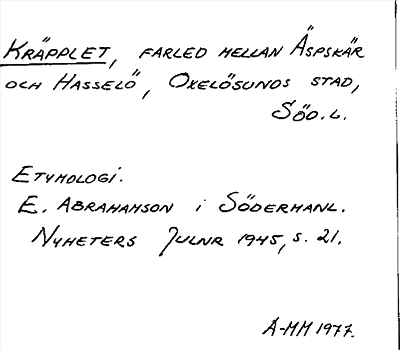 KRÄPPLET, FARLED MELLAN ÄSPSKÄR
OCH HASSELÖ, OXELÖSUNDS STAD,
SÖD.L.
ETYMOLOGI.
E. ABRAHAMSON i SÖDERMANL.
NYHETERS JULNR 1945, S. 21.
Å-MM 1977.